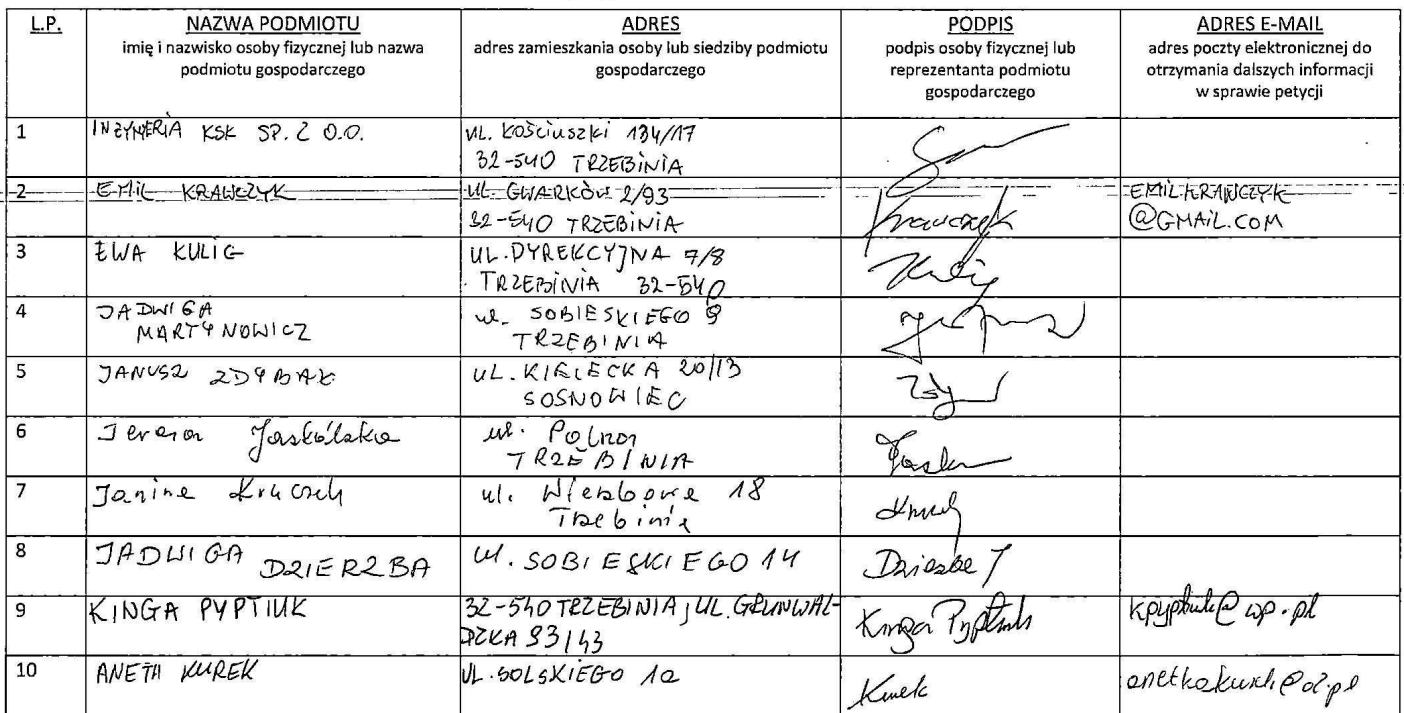 L.P. NAZWA PODMIOTU ADRES PODPIS ADRES E-MAIL
imię i nazwisko osoby fizycznej lub nazwa podmiotu gospodarczego
adres zamieszkania osoby lub siedziby podmiotu gospodarczego
podpis osoby fizycznej lub reprezentanta podmiotu gospodarczego
adres poczty elektronicznej do otrzymania dalszych informacji w sprawie petycji
1 INŻYNIERIA KSK SP. Z O.O. UL. KOŚCIUSZKI 134/17
32-540 TRZEBINIA
2 EMIL KRAWCZYK UL. GWARKÓW 2/93 Krawczyk EMIL.KRAWCZYK
32-540 TRZEBINIA @GMAIL.COM
3 EWA KULIG UL. DYREKCYJNA 7/8 Kulig
TRZEBINIA 32-540
4 JADWIGA ul. SOBIESKIEGO 9
MARTYNOWICZ TRZEBINIA
5 JANUSZ ZDYBAK UL. KIELECKA 20/13
SOSNOWIEC
6 Jaskólska ul. Polna
TRZEBINIA
7 Janina ul. Wierzbowa 18
Trzebinia
8 JADWIGA DZIERZBA ul. SOBIESKIEGO 14 Dzierzba J
9 KINGA PYPTIUK 32-540 TRZEBINIA, UL. GRUNWAL- Kinga Pyptiuk kpyptiuk@wp.pl
DZKA 93/43
10 ANETA KUREK UL. SOLSKIEGO 1a Kurek anetkakurek@o2.pl